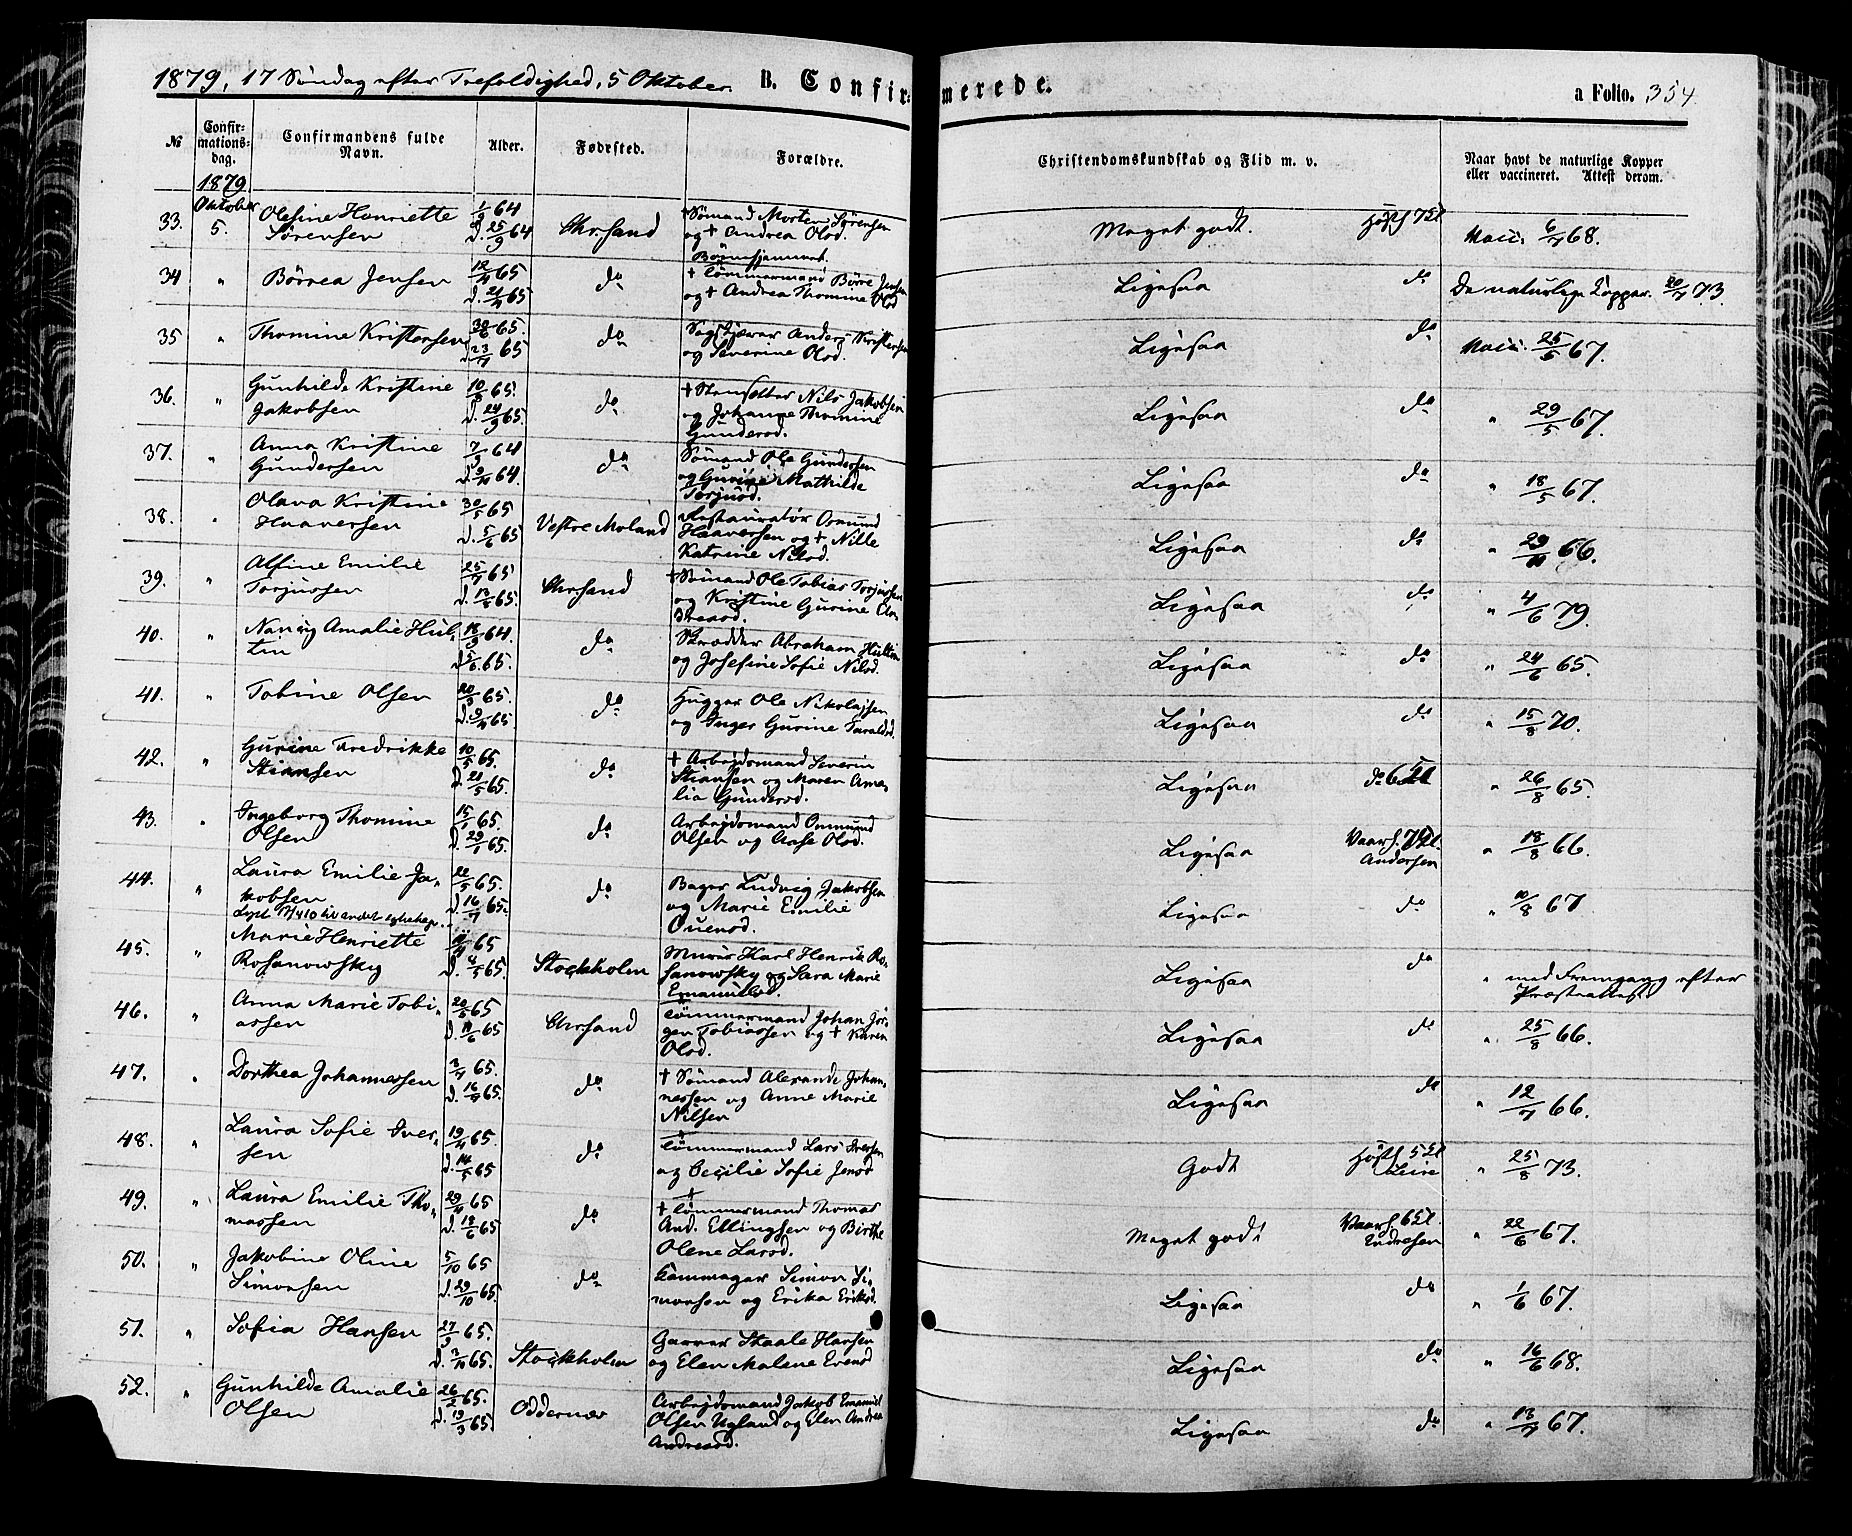 1879, 17 Søndag efter Trefoldighed, 5 Oktober. B. Confirmerede. a Folio. 354.
№ Confirmationsdag. Confirmandens fulde Navn. Alder. Fødested. Forældre. Christendomskundskab og Flid m. v. Naar havt de naturlige Kopper eller vaccineret. Attest derom.
1879
Oktober
33. 5. Olefine Henriette Sørensen 1/9 64 d. 25/9 64 Chr.sand † Sømand Morten Sørensen og † Andrea Olsd. Meget godt. Vacc. 6/7 68.
Børnehjemmet.
34 " Børrea Jensen 12/11 65 d. 65 do † Tømmermand Børre Jensen og † Andrea Thomine Olsd Ligesaa do De naturlige Kopper. 20/7 73.
35 " Thomine Kristensen 30/6 65. d. 23/7 65 do Anders Kristensen og Severine Olsd. Ligesaa do Vacc. 25/5 67.
36. " Gunhilde Kristine Jakobsen 10/8 65. d. 24/9 65. do † Stensetter Nils Jakobsen og Johanne Thomine Gundersd. Ligesaa do " 29/5 67.
37. " Anna Kristine Gundersen 7/9 64 d. 64. do Sømand Ole Gundersen og Gurine Mathilde Torjusd. Ligesaa do " 18/5 67.
38. " Olava Kristine Haaversen 30/5 65 d. 5/6 65 Vestre Moland Restauratør Osmund Haaversen og † Nille Katrine Nilsd. Ligesaa do " 29/11 66.
39. " Alfine Emilie Torjussen 25/7 65 d. 13/8 65. Chr.sand † Sømand Ole Tobias Torjussen og Kristine Gurine Ligesaa do " 4/6 79.
40. " Nancy Amalie Hultin 18/9 64. d. 5/6 65. do Skrædder Abraham Hultin og Josefine Sofie Nilsd. Ligesaa do " 24/6 65.
41. " Tobine Olsen 20/3 65. d. 9/4 65 do Hugger Ole Nikolajsen og Inger Gurine Taraldsd. Ligesaa do " 15/8 70.
42. " Gurine Fredrikke Stiansen 10/5 65. d. 21/5 65. do † Arbejdsmand Severin Stiansen og Maren Amelia Gundersd. Ligesaa do " 26/8 65.
43. " Ingeborg Thomine Olsen 15/1 65. d. 29/1 65. do Arbejdsmand Osmund Olsen og Aase Olsd. Ligesaa Vaarh. Andersen " 18/8 66.
44. " Laura Emilie Jakobsen 22/5 65. d. 16/7 65. do Bager Ludvig Jakobsen og Marie Emilie Ouensd. Ligesaa do " 10/8 67
45. " Marie Henriette Rosanowsky 65 d. 4/5 65. Stockholm Murer Karl Henrik Rosanowsky og Sara Marie Emanuelsd. Ligesaa do " med Fremgang efter Præsteattest
46. " Anna Marie Tobiassen 20/5 65 d. 11/6 65. Chr.sand Tømmermand Johan Jørgen Tobiassen og † Karen Olsd. Ligesaa do " 25/8 66.
47. " Dorthea Johannessen 2/7 65. d. 16/7 65. do † Sømand Alexande Johannessen og Anne Marie Nilsen Ligesaa do " 12/7 66.
48. " Laura Sofie Iversen 19/4 65. d. 14/5 65 do Tømmermand Lars Iversen og Cecilie Sofie Jensd Godt Høsth 5 Leire " 25/8 73.
49. " Laura Emilie Thomassen 29/4 65 d. 18/6 65 do † Tømmermand Thomas And. Ellingsen og Birthe Olene Larsd. Meget godt Vaarh 6 Endresen " 22/6 67.
50. " Jakobine Oline Simonsen 5/10 65 d. 29/10 65. do Kammager Simon Simonsen og Erika Eriksd. Ligesaa do " 1/6 67.
51. " Sofia Hansen 27/9 65. d. 65. Stockholm Garver Staale Hansen og Elen Malene Evensd Ligesaa do " 16/6 68.
52. " Gunhilde Amalie Olsen 26/2 65. d. 19/3 65 Oddernæs Arbejdsmand Jakob Emanuel Olsen Ugland og Elen Andrea Andreasd. Ligesaa do " 13/7 67.